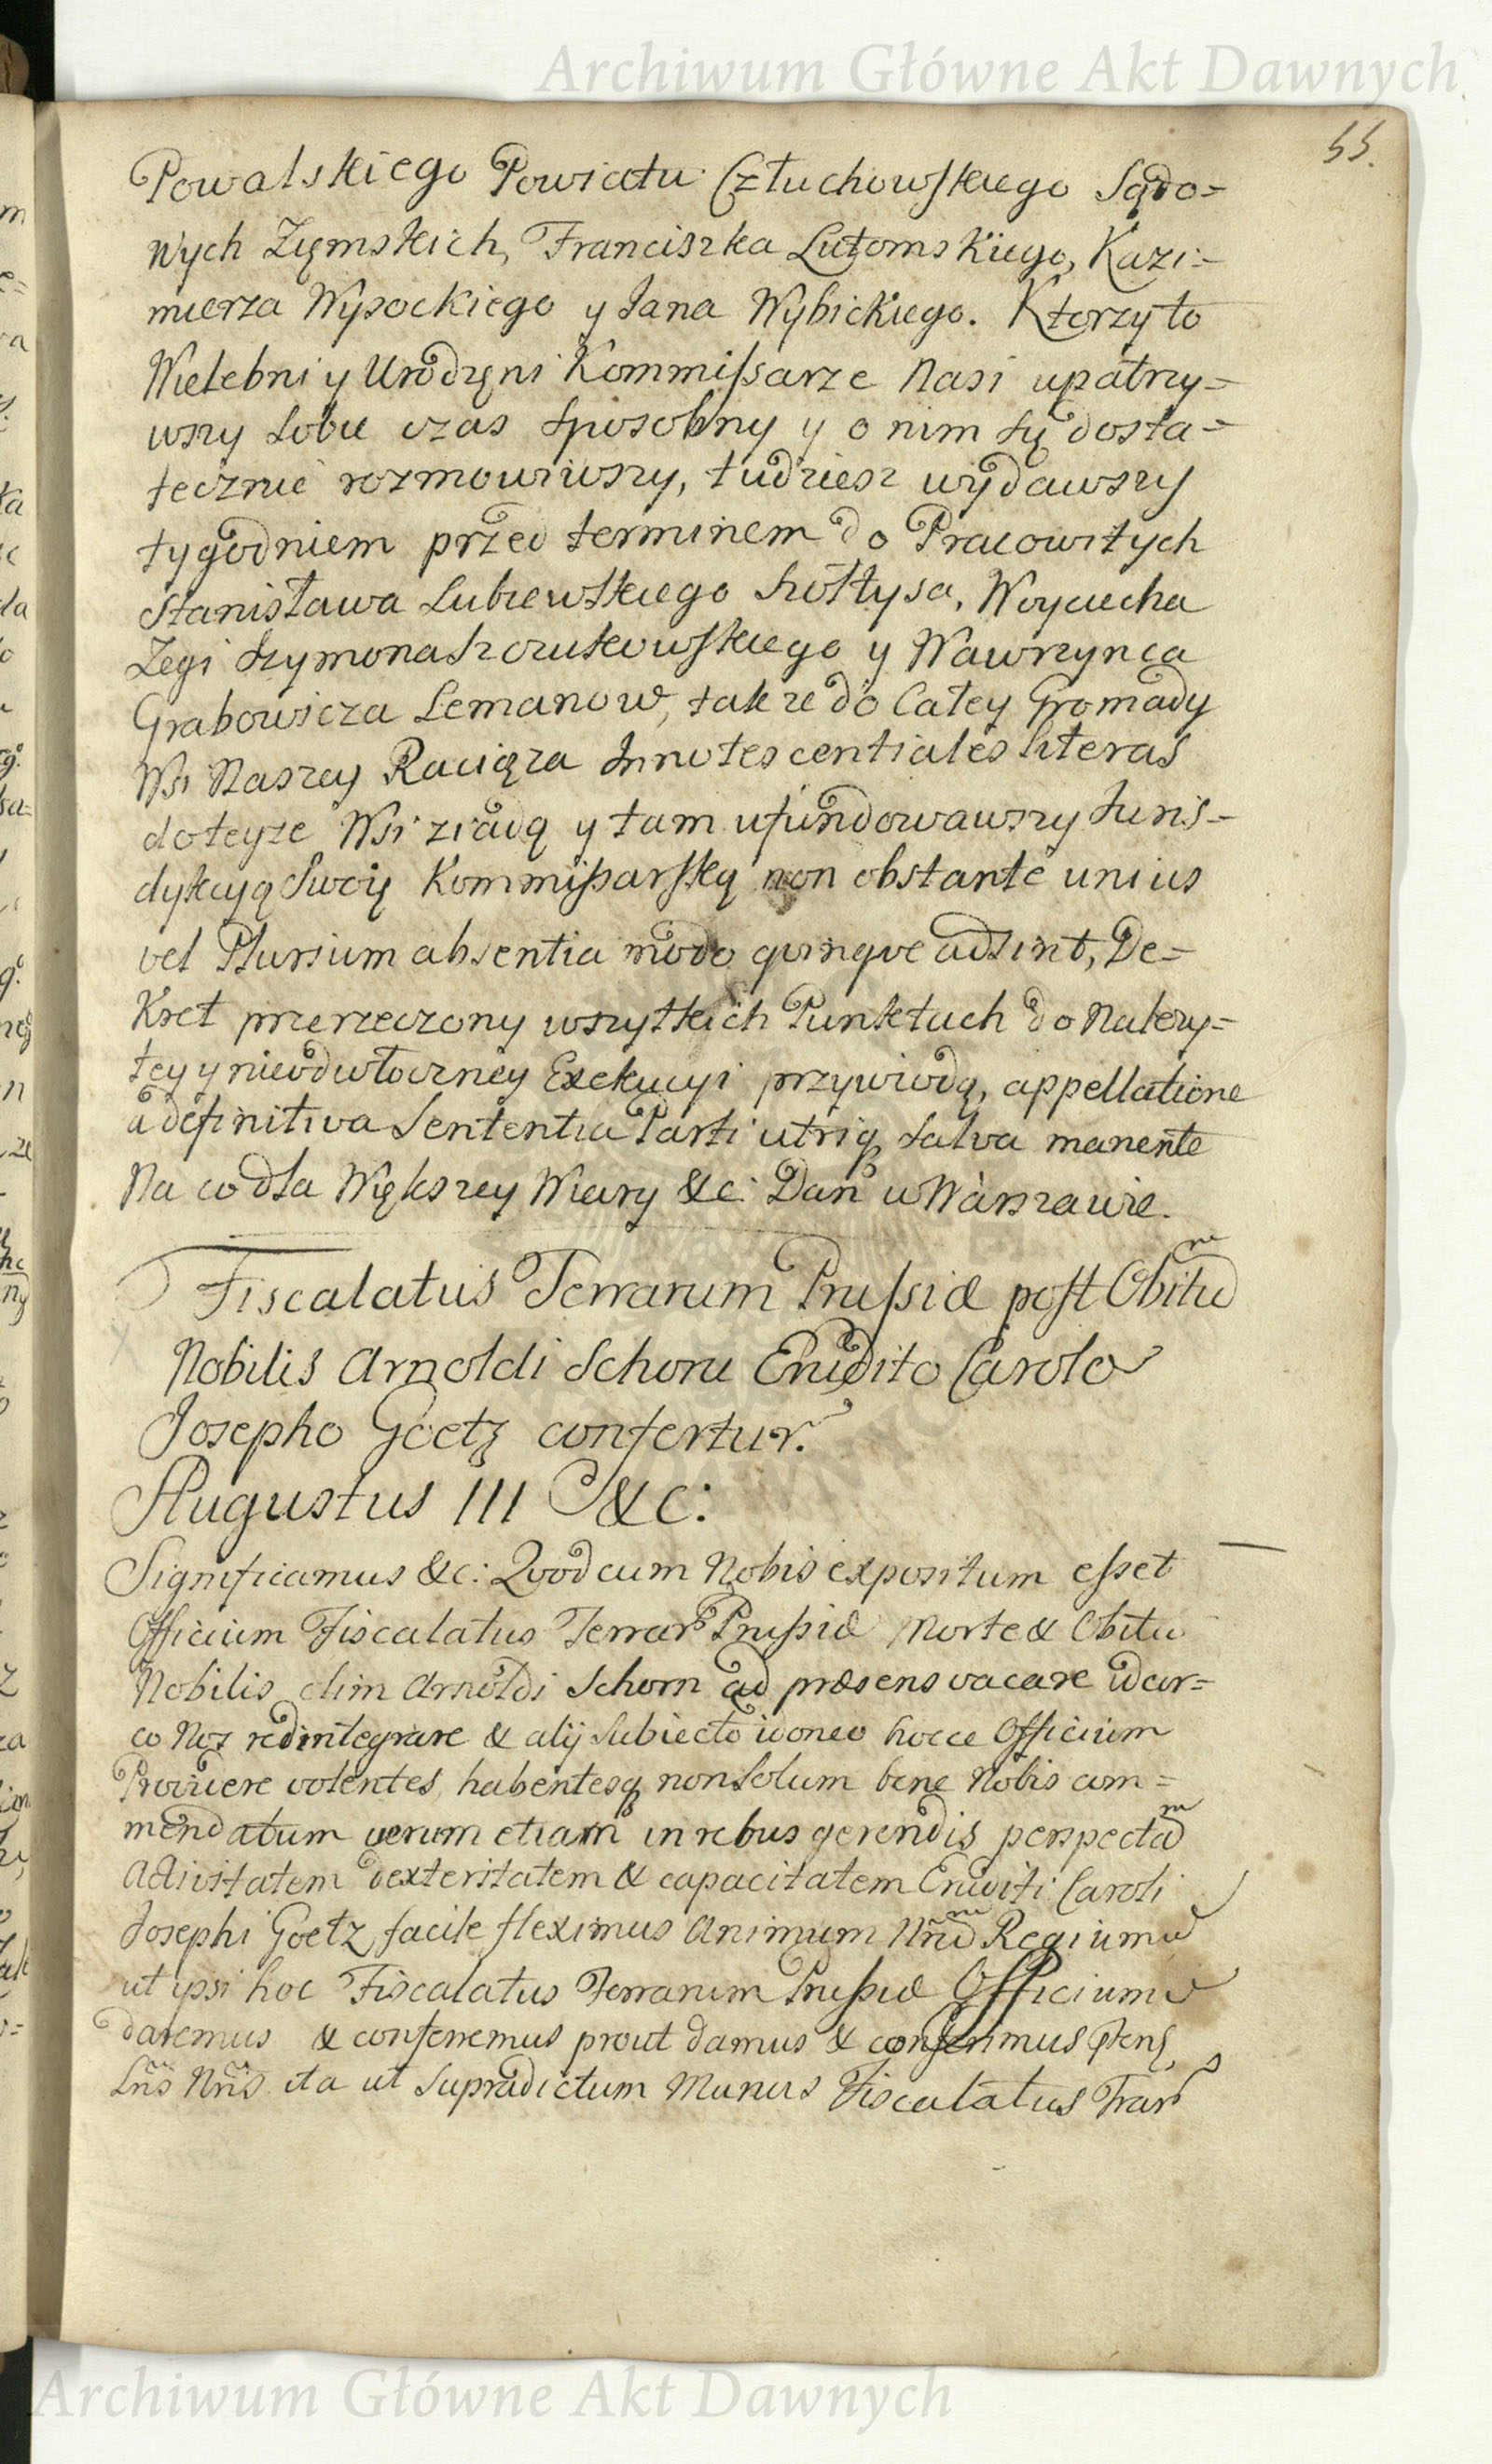 Archiwum Główne Akt Dawnych
55.
Powalskiego Powiatu Człuchowskiego Sądo=
wych Zięmskich, Franciszka Lutomskiego, Kazi=
mierza Wysockiego y Jana Wybickiego. Ktorzyto
Wielebni y Urodzęni Kommissarze Nasi upatrzy=
wszy sobie czas sposobny y o nim się dosta=
tecznie rozmowiwszy, tudziesz wydawszy
tygodniem przed terminem do Pracowitych
Stanisława Lubiewskiego Szołtysa, Woyciecha
Zegi Szymona Szczukowskiego y Wawrzynca
Grabowicza Lemanow, takze do Całey Gromady
Wsi Naszey Raciąza Innotescentiales literas
doteyze Wsi ziadą y tam ufundowawszy Juris=
dykcyą Swoię Kommissarską non obstante unius
vel Plurium absentia modo quinque adsint, De=
kret przerzeczony wszytkich Punktach do Nalezy=
tey y nieodwłoczney Exekucyi przywiodą, appellatione
a definitiva Sententia Parti utriq salva manente
Na co dla Większey Wiary &c: Dan w Warszawie.
Fiscalatus Terrarum Prussiæ post Obitum
Nobilis Arnoldi Schorn Erudito Carolo
Josepho Goetz confertur.
Augustus III &c:
Significamus &c: Quod cum Nobis expositum esset
Officium Fiscalatus Terrar Prussiæ Morte & Obitu
Nobilis olim Arnoldi Schorn ad præsens vacare idcir=
co Nos redintegrare & alij Subiecto idoneo hocce Officium
Providere volentes, habentesq non solum bene Nobis com=
mendatum verum etiam in rebus gerendis perspectam
Activitatem dexteritatem & capacitatem Eruditi Caroli
Josephi Goetz facile fleximus Animum Nrum Regium
ut ipsi hoc Fiscalatus Terrarum Prussiæ Officium
daremus & conferremus prout damus & conferimus pens
Lris Nris ita ut Supradictum Munus Fiscalatus Trar
Archiwum Główne Akt Dawnych